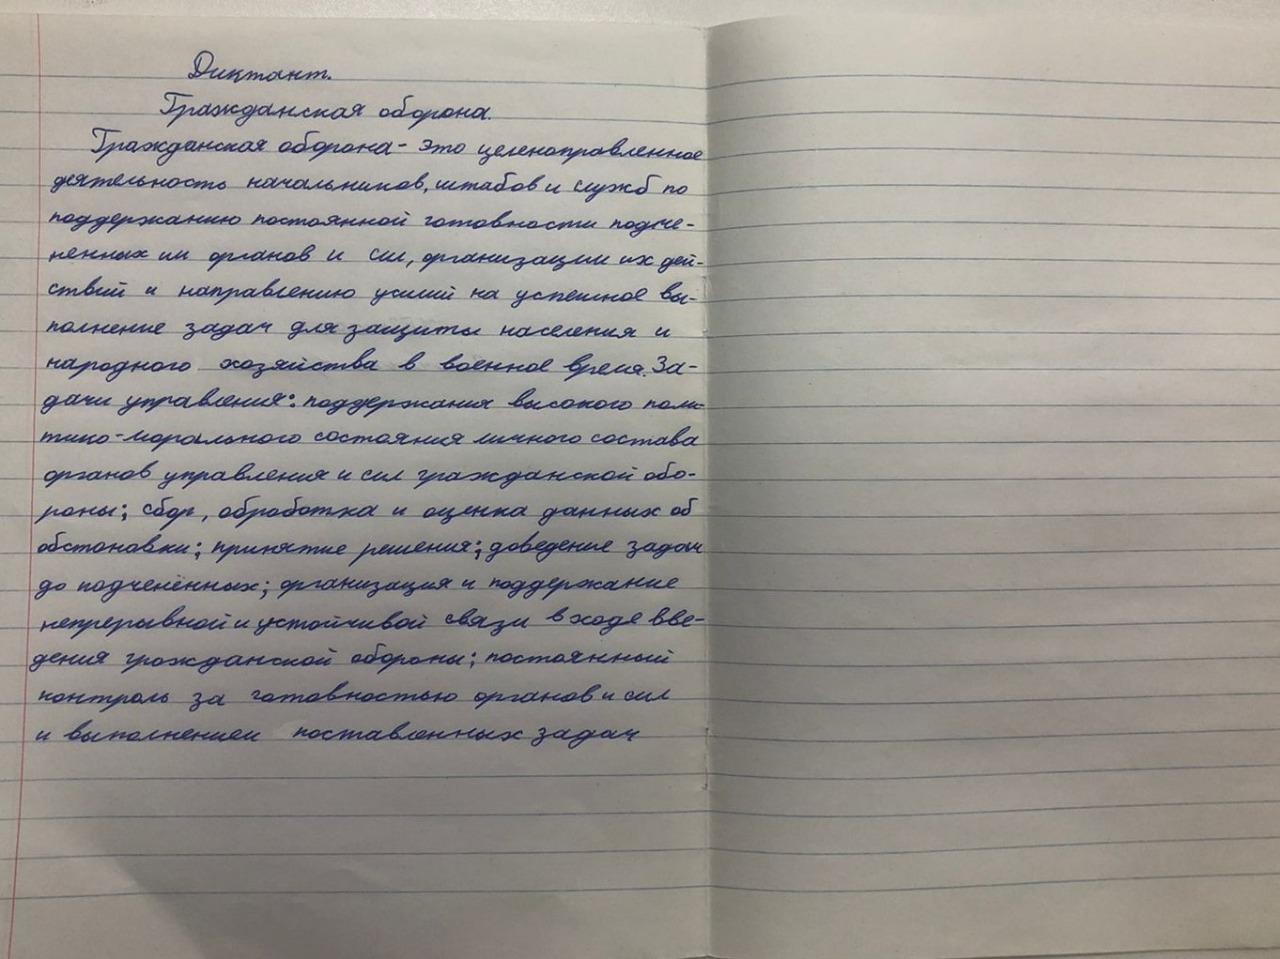 Диктант.
Гражданская оборона.
Гражданская оборона - это целеноправленное
деятельность начальников, штабов и служб по
поддержанию постоянной готовности подче-
ненных им органов и сил, организации их дей-
ствий и направлению усилий на успешное вы-
полнение задач для защиты населения и
народного хозяйства в военное время. За-
дачи управления: поддержания высокого поли-
тико-морального состояния личного состава
органов управления и сил гражданской обо-
роны; сбор, обработка и оценка данных об
обстановки; принятие решения; доведение задач
до подчененных; организация и поддержание
непрерывной и устойчивой связи в ходе вве-
дения гражданской обороны; постоянный
контроль за готовностью органов и сил
и выполнением поставленных задач